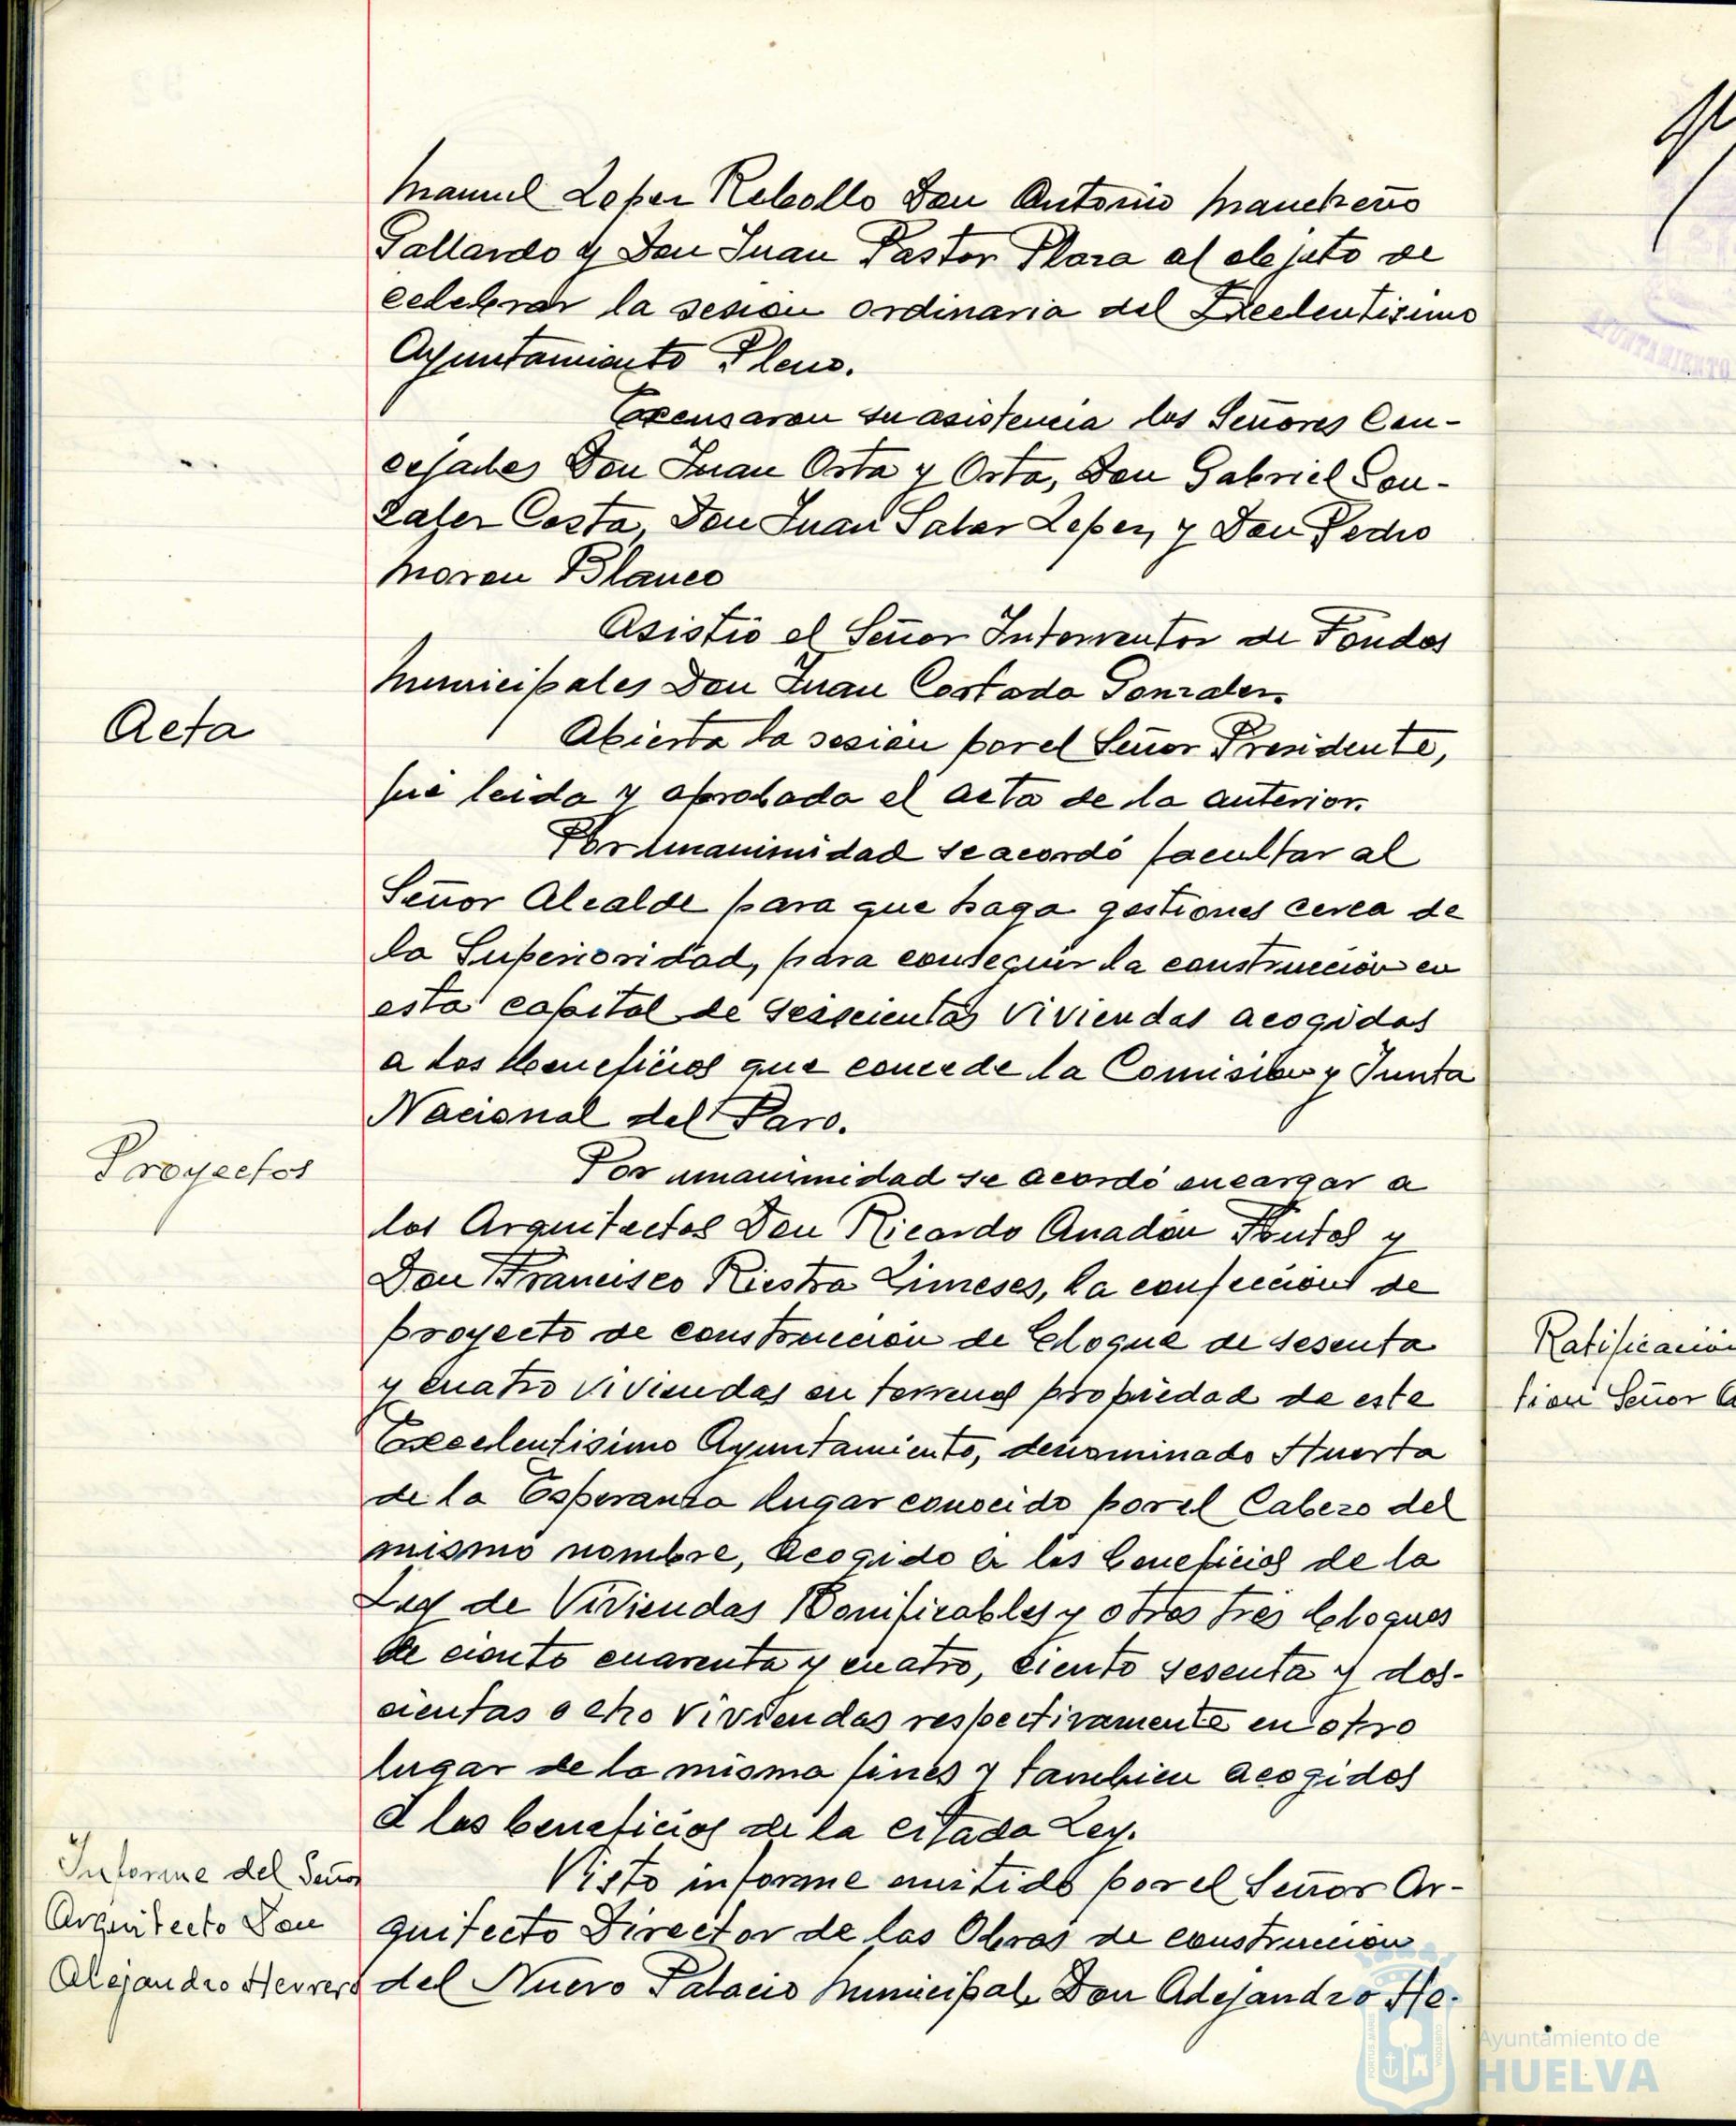 Manuel Lopez Rebollo Don Antonio Mancheño
Gallardo y Don Juan Pastor Plaza al objeto de
celebrar la sesion ordinaria del Excelentisimo
Ayuntamiento Pleno.
Excusaron su asistencia los Señores Con-
cejales Don Juan Orta y Orta, Don Gabriel Gon-
zalez Costa, Don Juan Salas Lepez, y Don Pedro
Moron Blanco
Asistió el Señor Interventor de Fondos
Municipales Don Juan Costado Gonzalez.
Acta
Abierta la sesion por el Señor Presidente,
fué leida y aprobada el acta de la anterior.
Por unanimidad se acordó facultar al
Señor Alcalde para que haga gestiones cerca de
la Superioridad, para conseguir la construcción en
esta capital de seiscientas viviendas acogidas
a los beneficios que concede la Comision y Junta
Nacional del Paro.
Proyectos
Por unanimidad se acordó encargar a
los Arquitectos Don Ricardo Anadón Frutos y
Don Francisco Riestra Limeses, la confeccion de
proyecto de construccion de bloque de sesenta
y cuatro viviendas en terrenos propiedad de este
Excelentisimo Ayuntamiento, denominado Huerta
de la Esperanza lugar conocido por el Cabezo del
mismo nombre, acogido a los beneficios de la
Ley de Viviendas Bonificables y otros tres bloques
de ciento cuarenta y cuatro, ciento sesenta y dos-
cientas ocho viviendas respectivamente en otro
lugar de la misma fines y tambien acogidos
a los beneficios de la citada Ley.
Informe del Señor
Arquitecto Don
Alejandro Herrero
Visto informe emitido por el Señor Ar-
quitecto Director de las Obras de construccion
del Nuevo Palacio Municipal, Don Alejandro He-
Ratificación
tion Señor
Ayuntamiento de
HUELVA